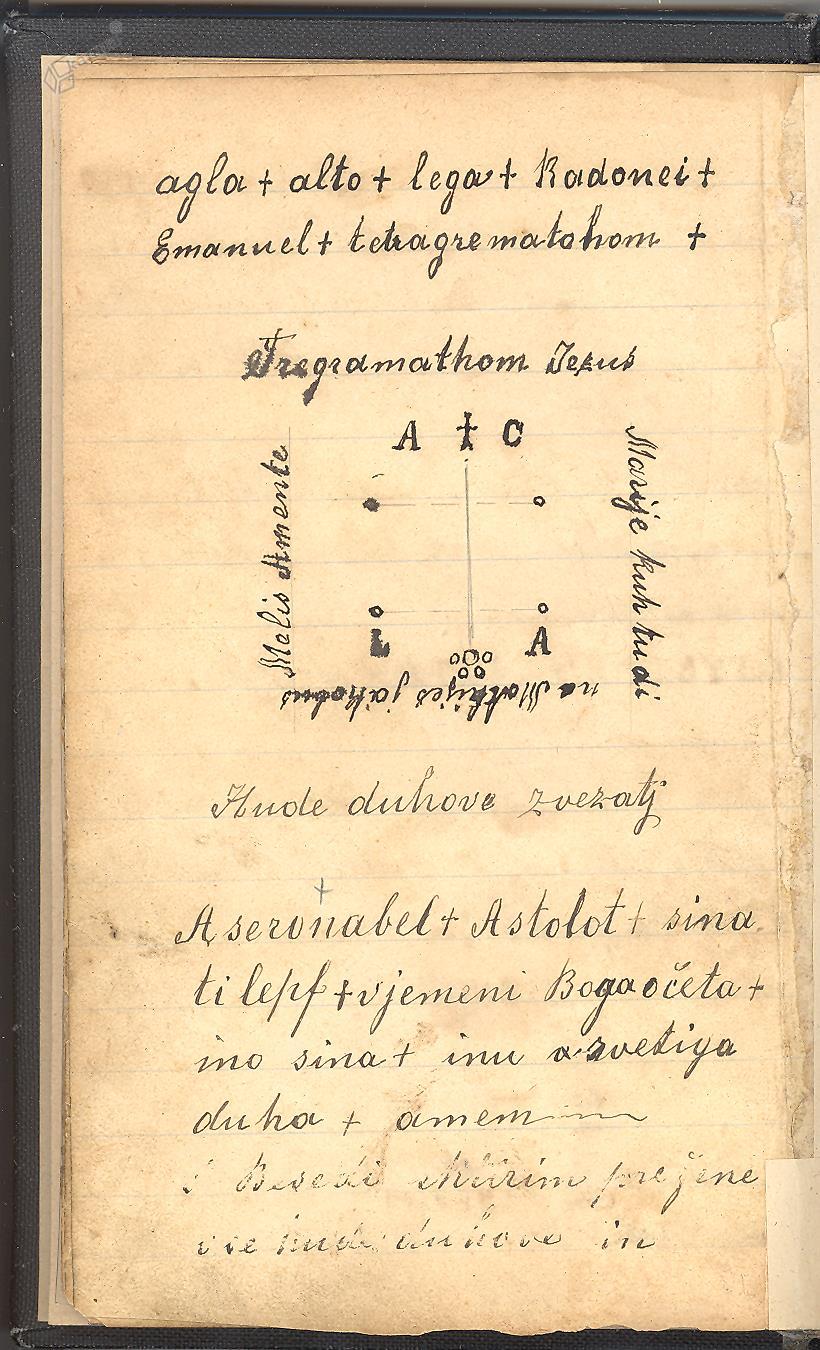 agla + alto + lega + Radonei +
Emanuel + tetragrematohom +
Tregramathom Jezus
A † C
Melis Amente
Marije kuh tudi
L A
na Mathijes jakobus
Hude duhove zvezatj
+
Aseronabel + Astolot + sina
ti lepf + vjemeni Bogaočeta +
ino sina + inu
duha + amem
Besedi skterim prežene
vse hude duhove in